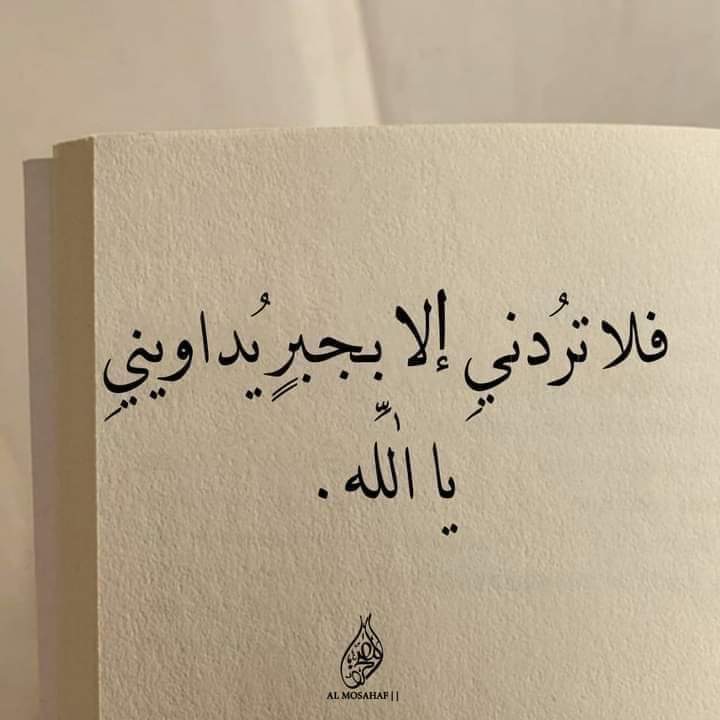 فلا تُردنيِ إلا بجبرٍ يُداوينيِ
يا اللّٰه .
AL MOSAHAF ||